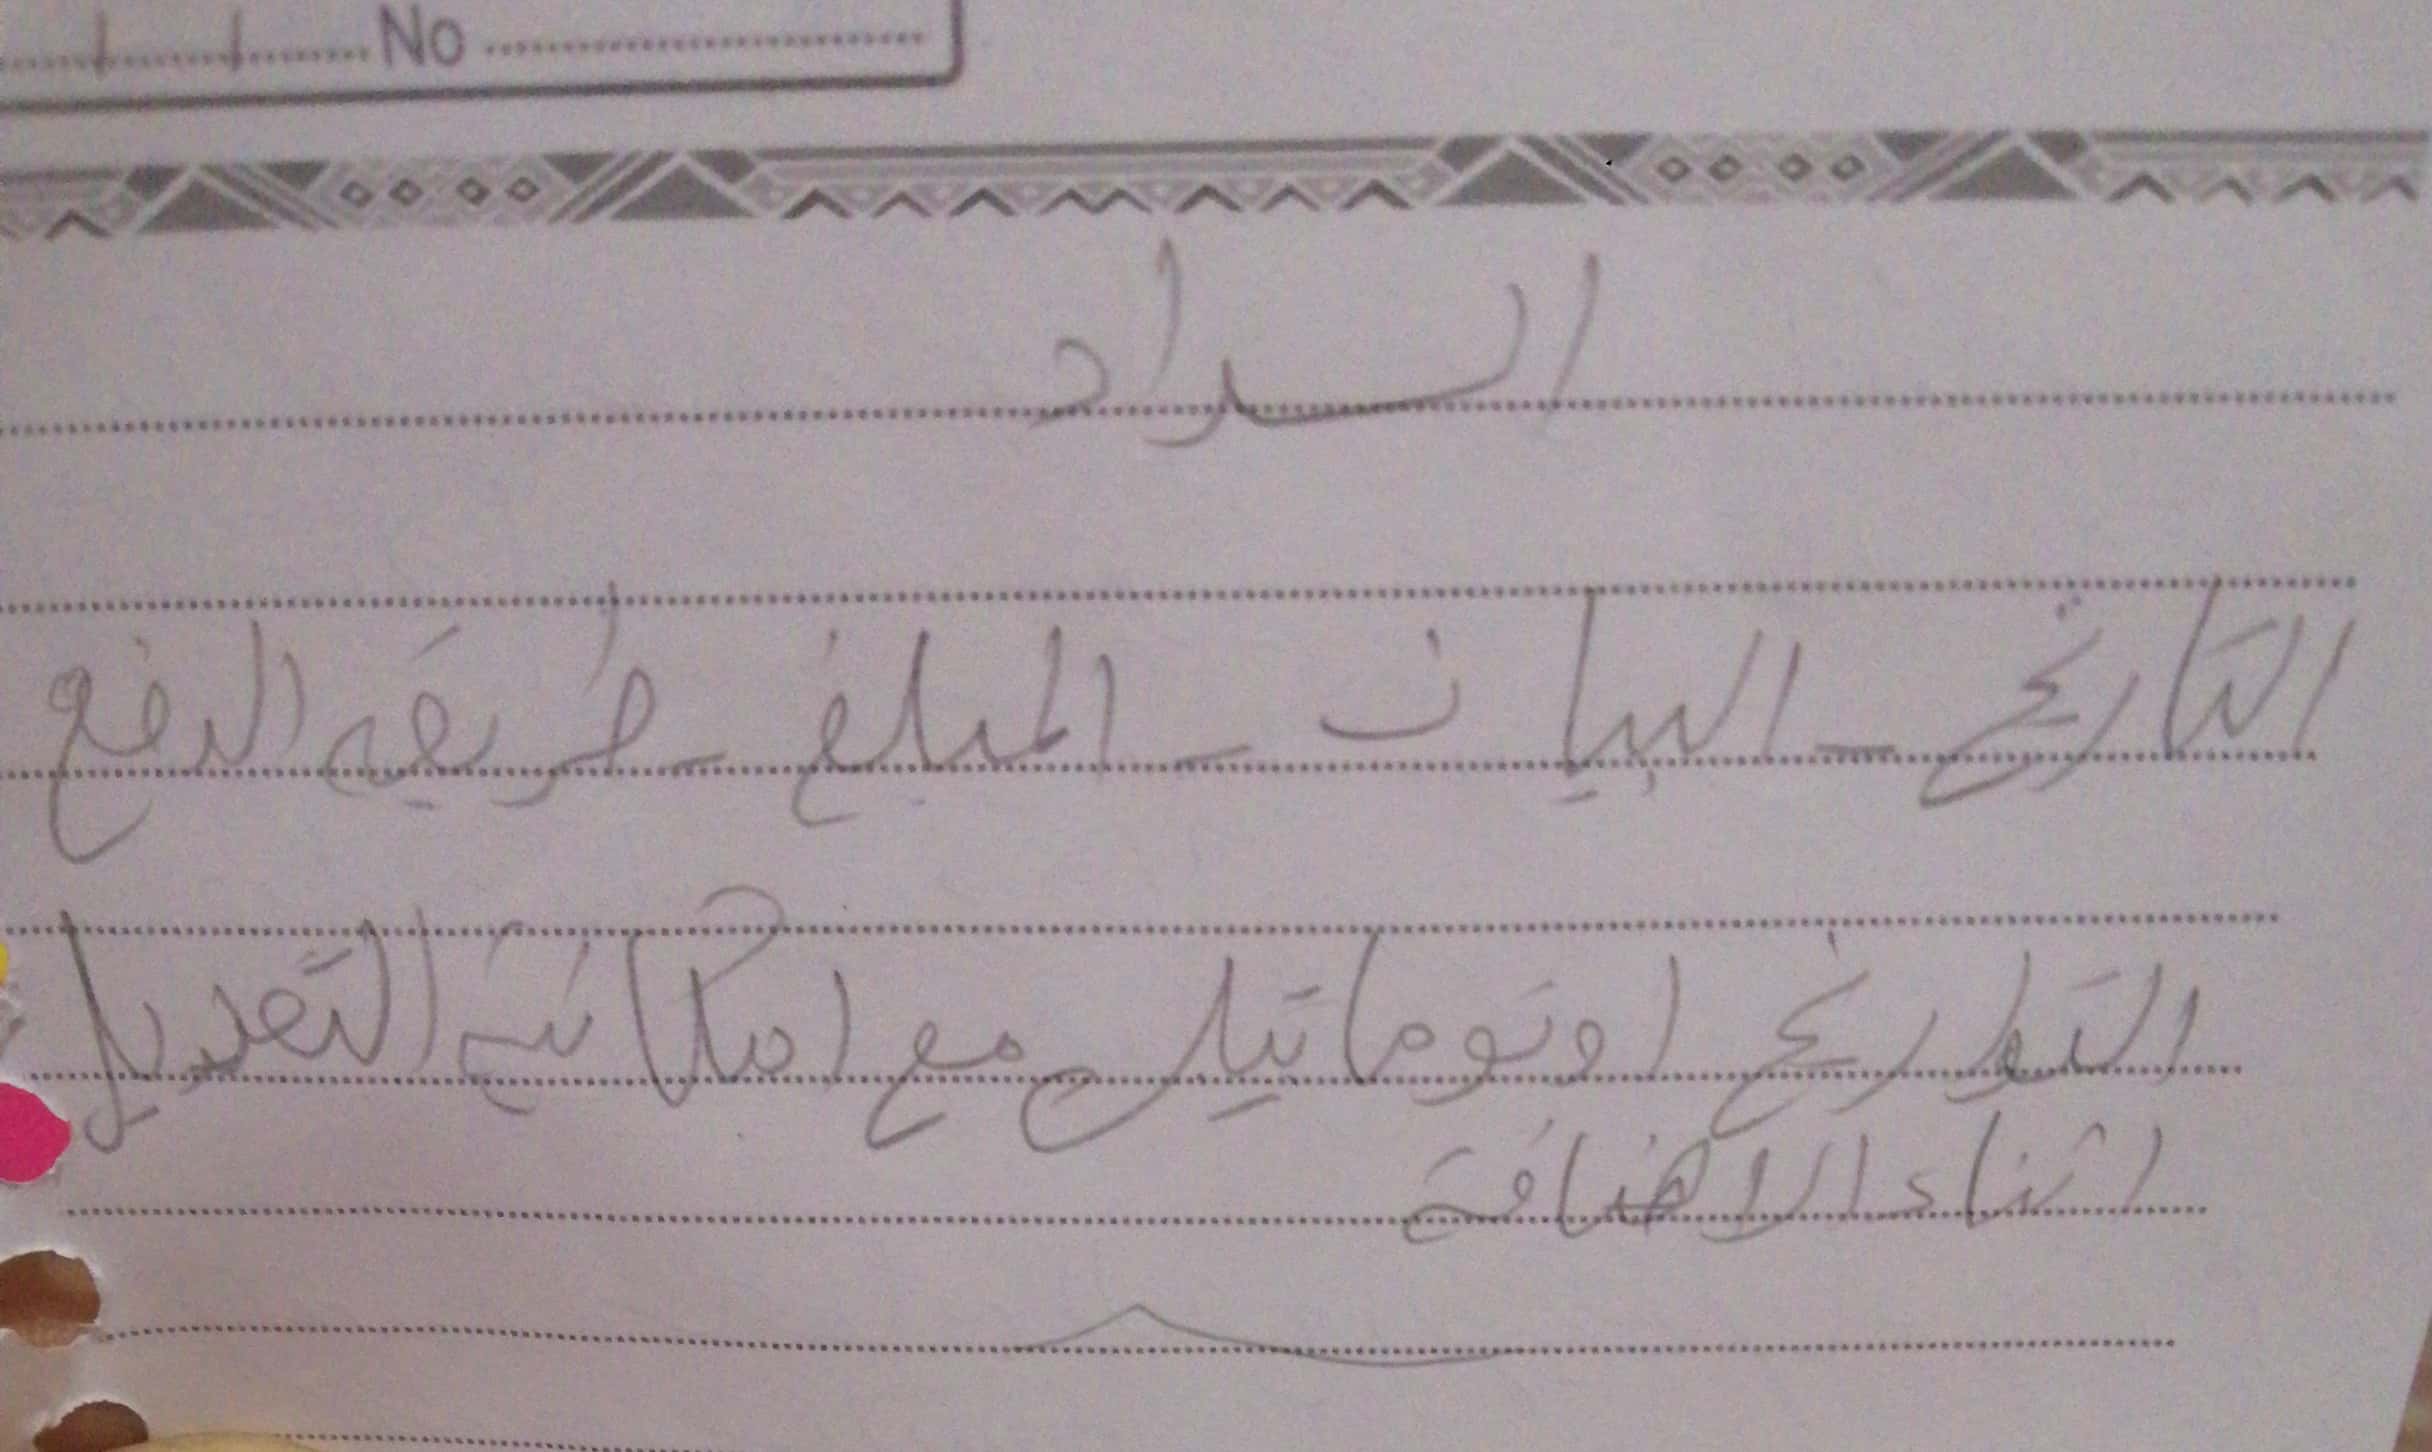 No
السداد
التاريخ - البيان - المبلغ - طريقه الدفع
التواريخ اوتوماتيك مع امكانية التعديل
اثناء الاضافة